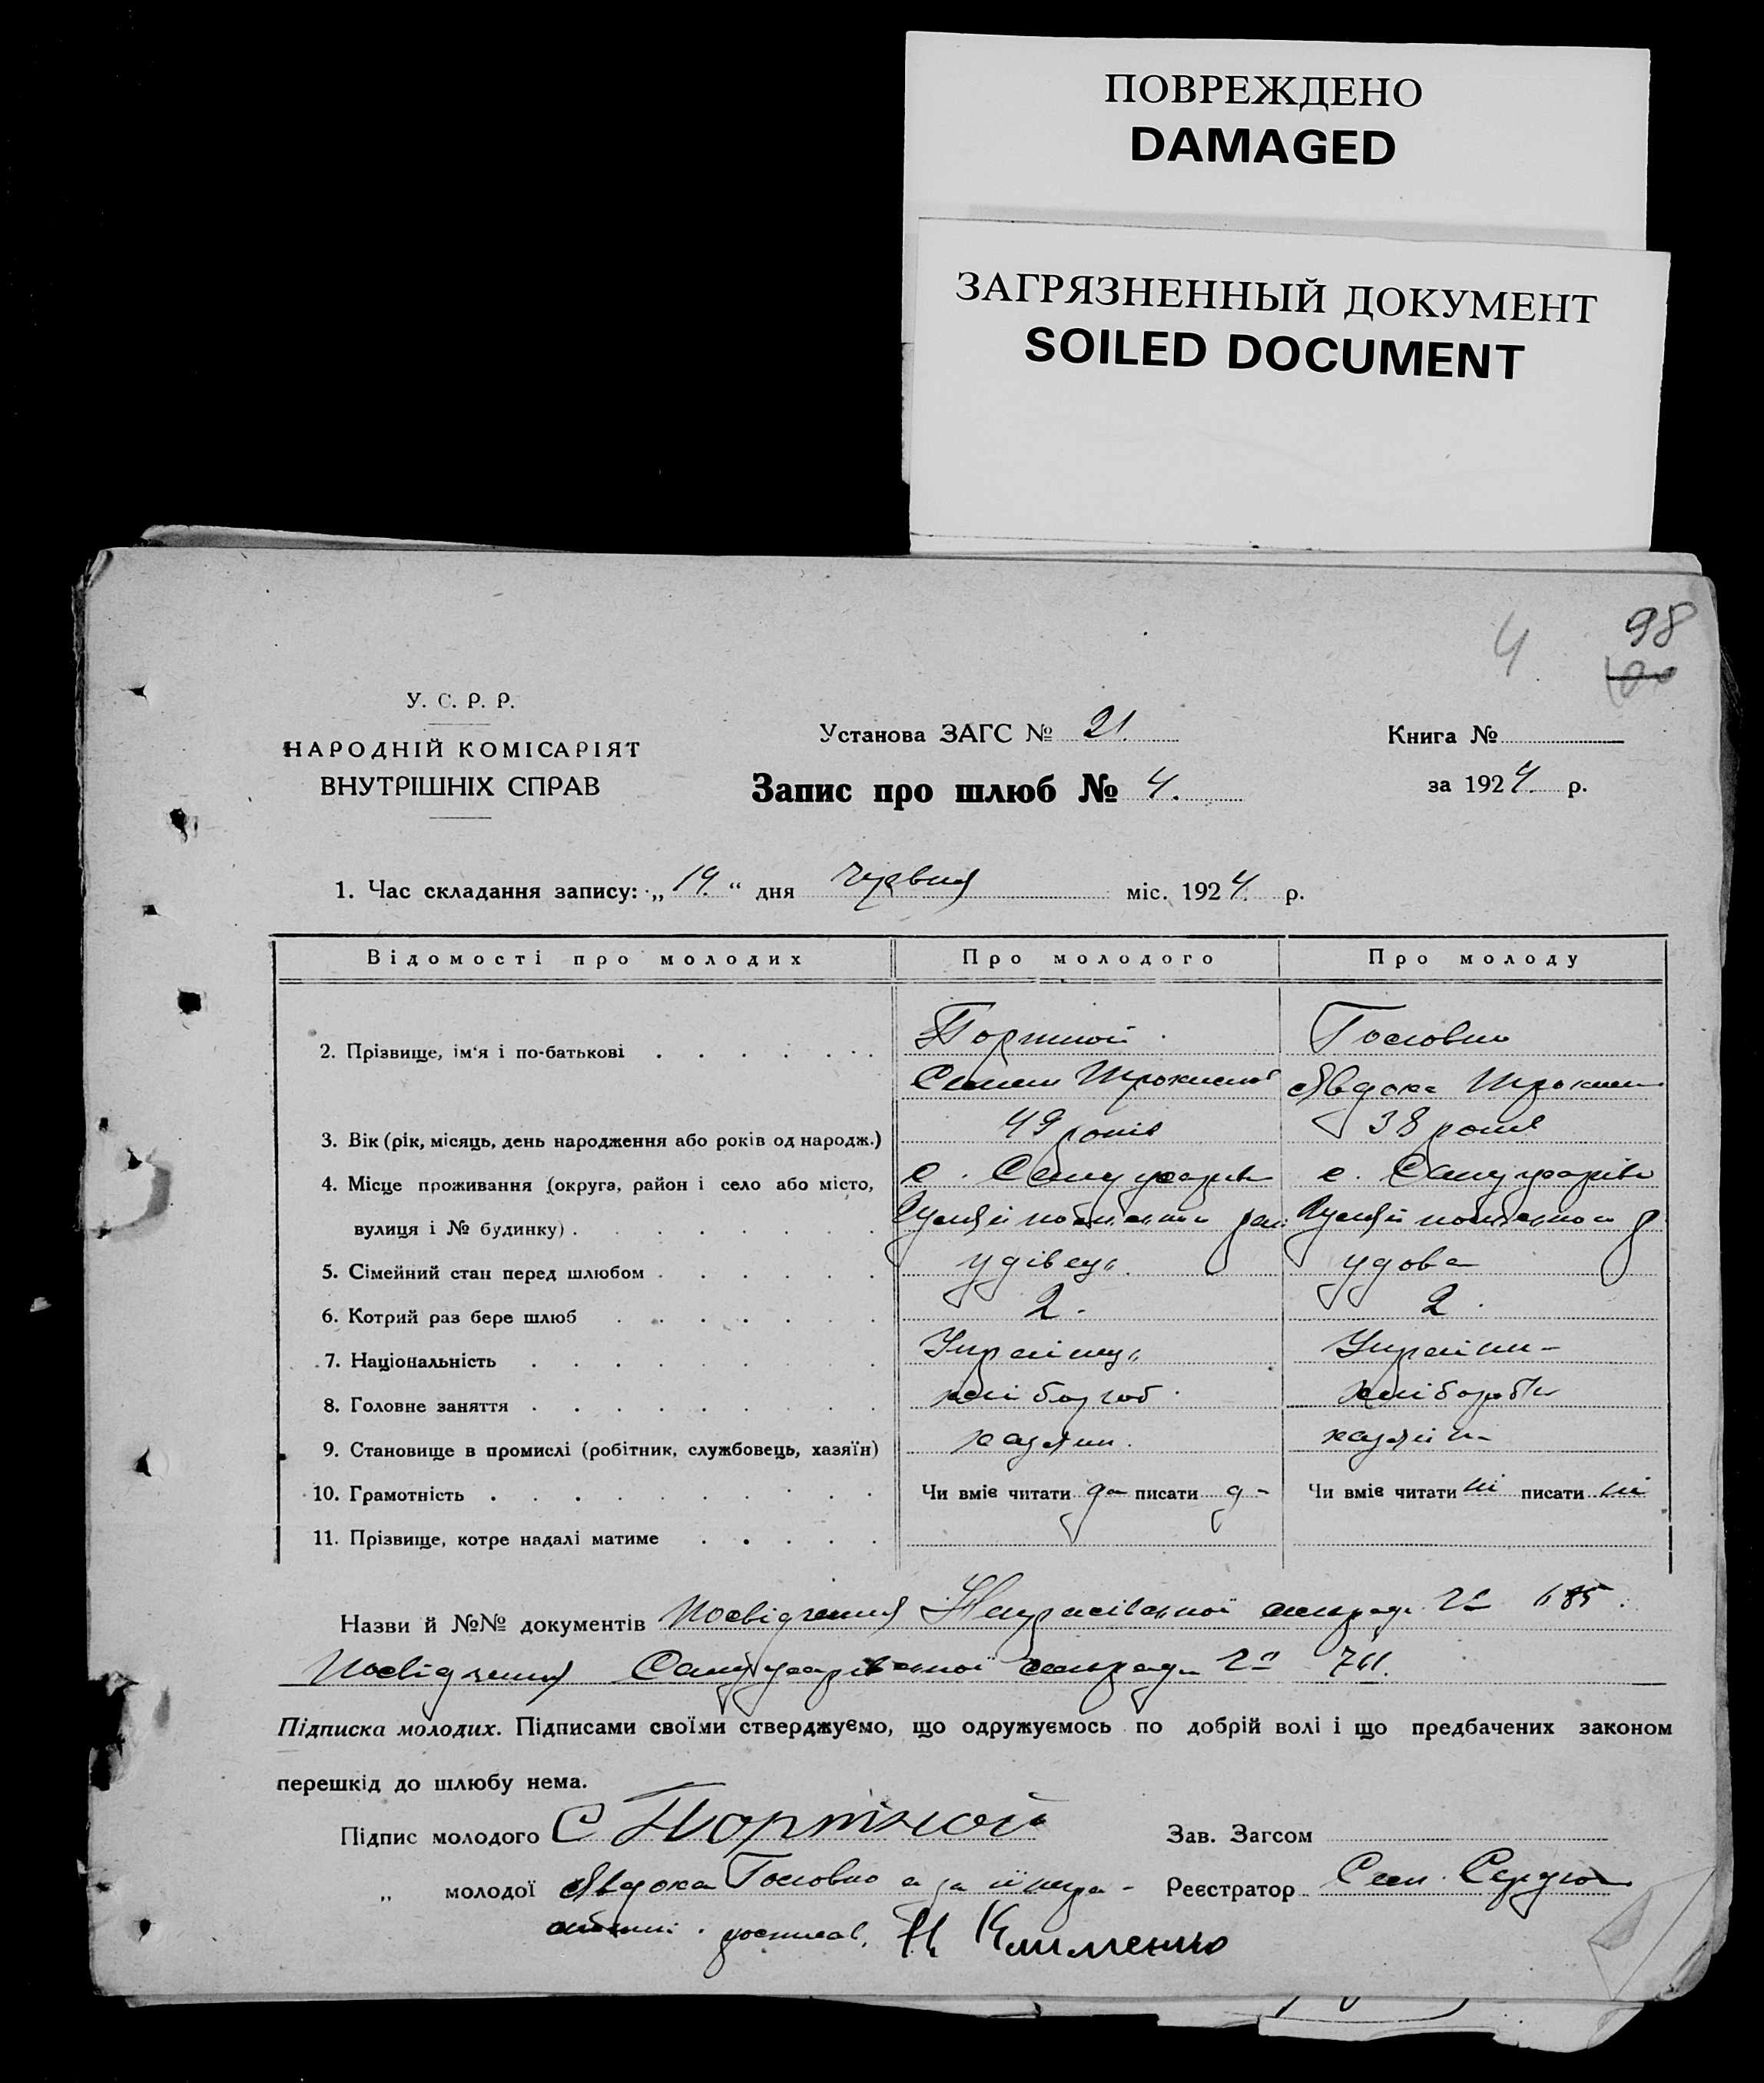 ПОВРЕЖДЕНО
DAMAGED
ЗАГРЯЗНЕННЫЙ ДОКУМЕНТ
SOILED DOCUMENT
4 98
У. С. Р. Р.
НАРОДНІЙ КОМІСАРІЯТ
ВНУТРІШНІХ СПРАВ
Установа ЗАГС № 21.
Запис про шлюб № 4.
Книга №
за 1924. р.
1. Час складання запису: „19.“ дня червня міс. 1924. р.
Відомості про молодих Про молодого Про молоду
2. Прізвище, ім'я і по-батькові Портной
Явдоха
3. Вік (рік, місяць, день народження або років од народж.) 49 років 38 років
4. Місце проживання (округа, район і село або місто, с. с.
вулиця і № будинку)
5. Сімейний стан перед шлюбом удівець. удова
6. Котрий раз бере шлюб 2. 2.
7. Національність Українць Українка
8. Головне заняття хлібороб. хлібороб
9. Становище в промислі (робітник, службовець, хазяїн) хазяин. хазяїн
10. Грамотність Чи вміє читати да писати да Чи вміє читати ні писати ні
11. Прізвище, котре надалі матиме
Назви й №№ документів Посвідчення сільради № 685.
Посвідчення сільради №
Підписка молодих. Підписами своїми стверджуємо, що одружуємось по добрій волі і що предбачених законом
перешкід до шлюбу нема.
Підпис молодого С Портной Зав. Загсом
„ молодої Явдоха а за її Реєстратор
росписав. Клименко